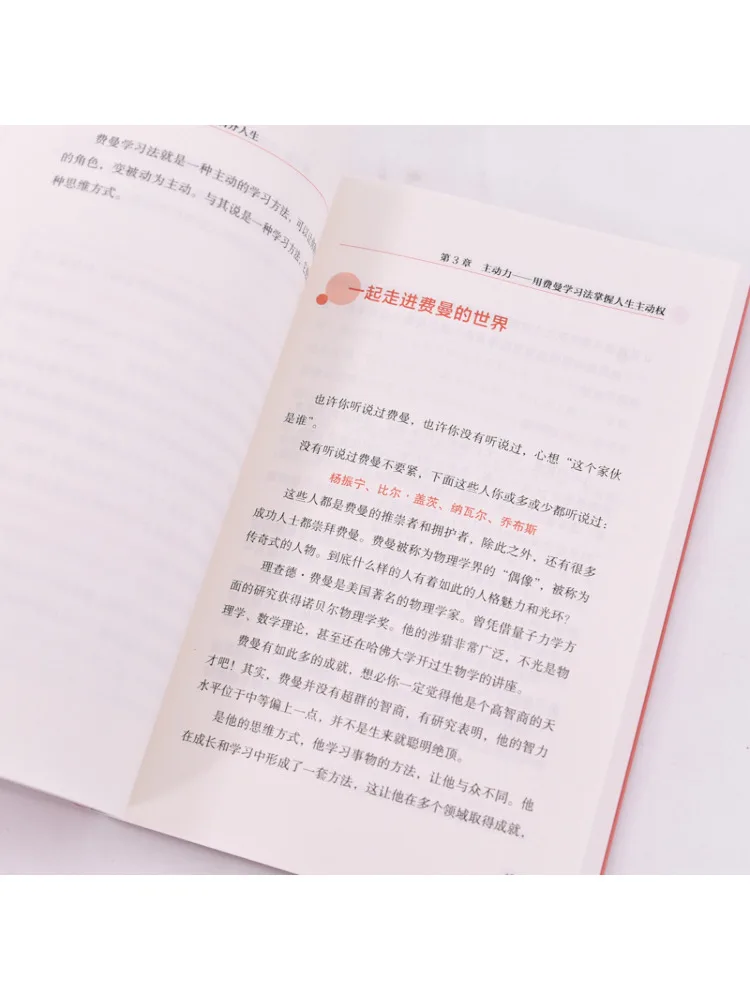 人生
费曼学习法就是一种主动的学习方法，可以
的角色，变被动为主动。与其说是一种学习方法，
种思维方式。
第3章 主动力——用费曼学习法掌握人生主动权
一起走进费曼的世界
也许你听说过费曼，也许你没有听说过，心想“这个家伙
是谁”。
没有听说过费曼不要紧，下面这些人你或多或少都听说过：
杨振宁、比尔·盖茨、纳瓦尔、乔布斯
这些人都是费曼的推崇者和拥护者，除此之外，还有很多
成功人士都崇拜费曼。费曼被称为物理学界的“偶像”，被称为
传奇式的人物。到底什么样的人有着如此的人格魅力和光环？
理查德·费曼是美国著名的物理学家。曾凭借量子力学方
面的研究获得诺贝尔物理学奖。他的涉猎非常广泛，不光是物
理学、数学理论，甚至还在哈佛大学开过生物学的讲座。
费曼有如此多的成就，想必你一定觉得他是个高智商的天
才吧！其实，费曼并没有超群的智商，有研究表明，他的智力
水平位于中等偏上一点，并不是生来就聪明绝顶。
是他的思维方式，他学习事物的方法，让他与众不同。他
在成长和学习中形成了一套方法，这让他在多个领域取得成就，